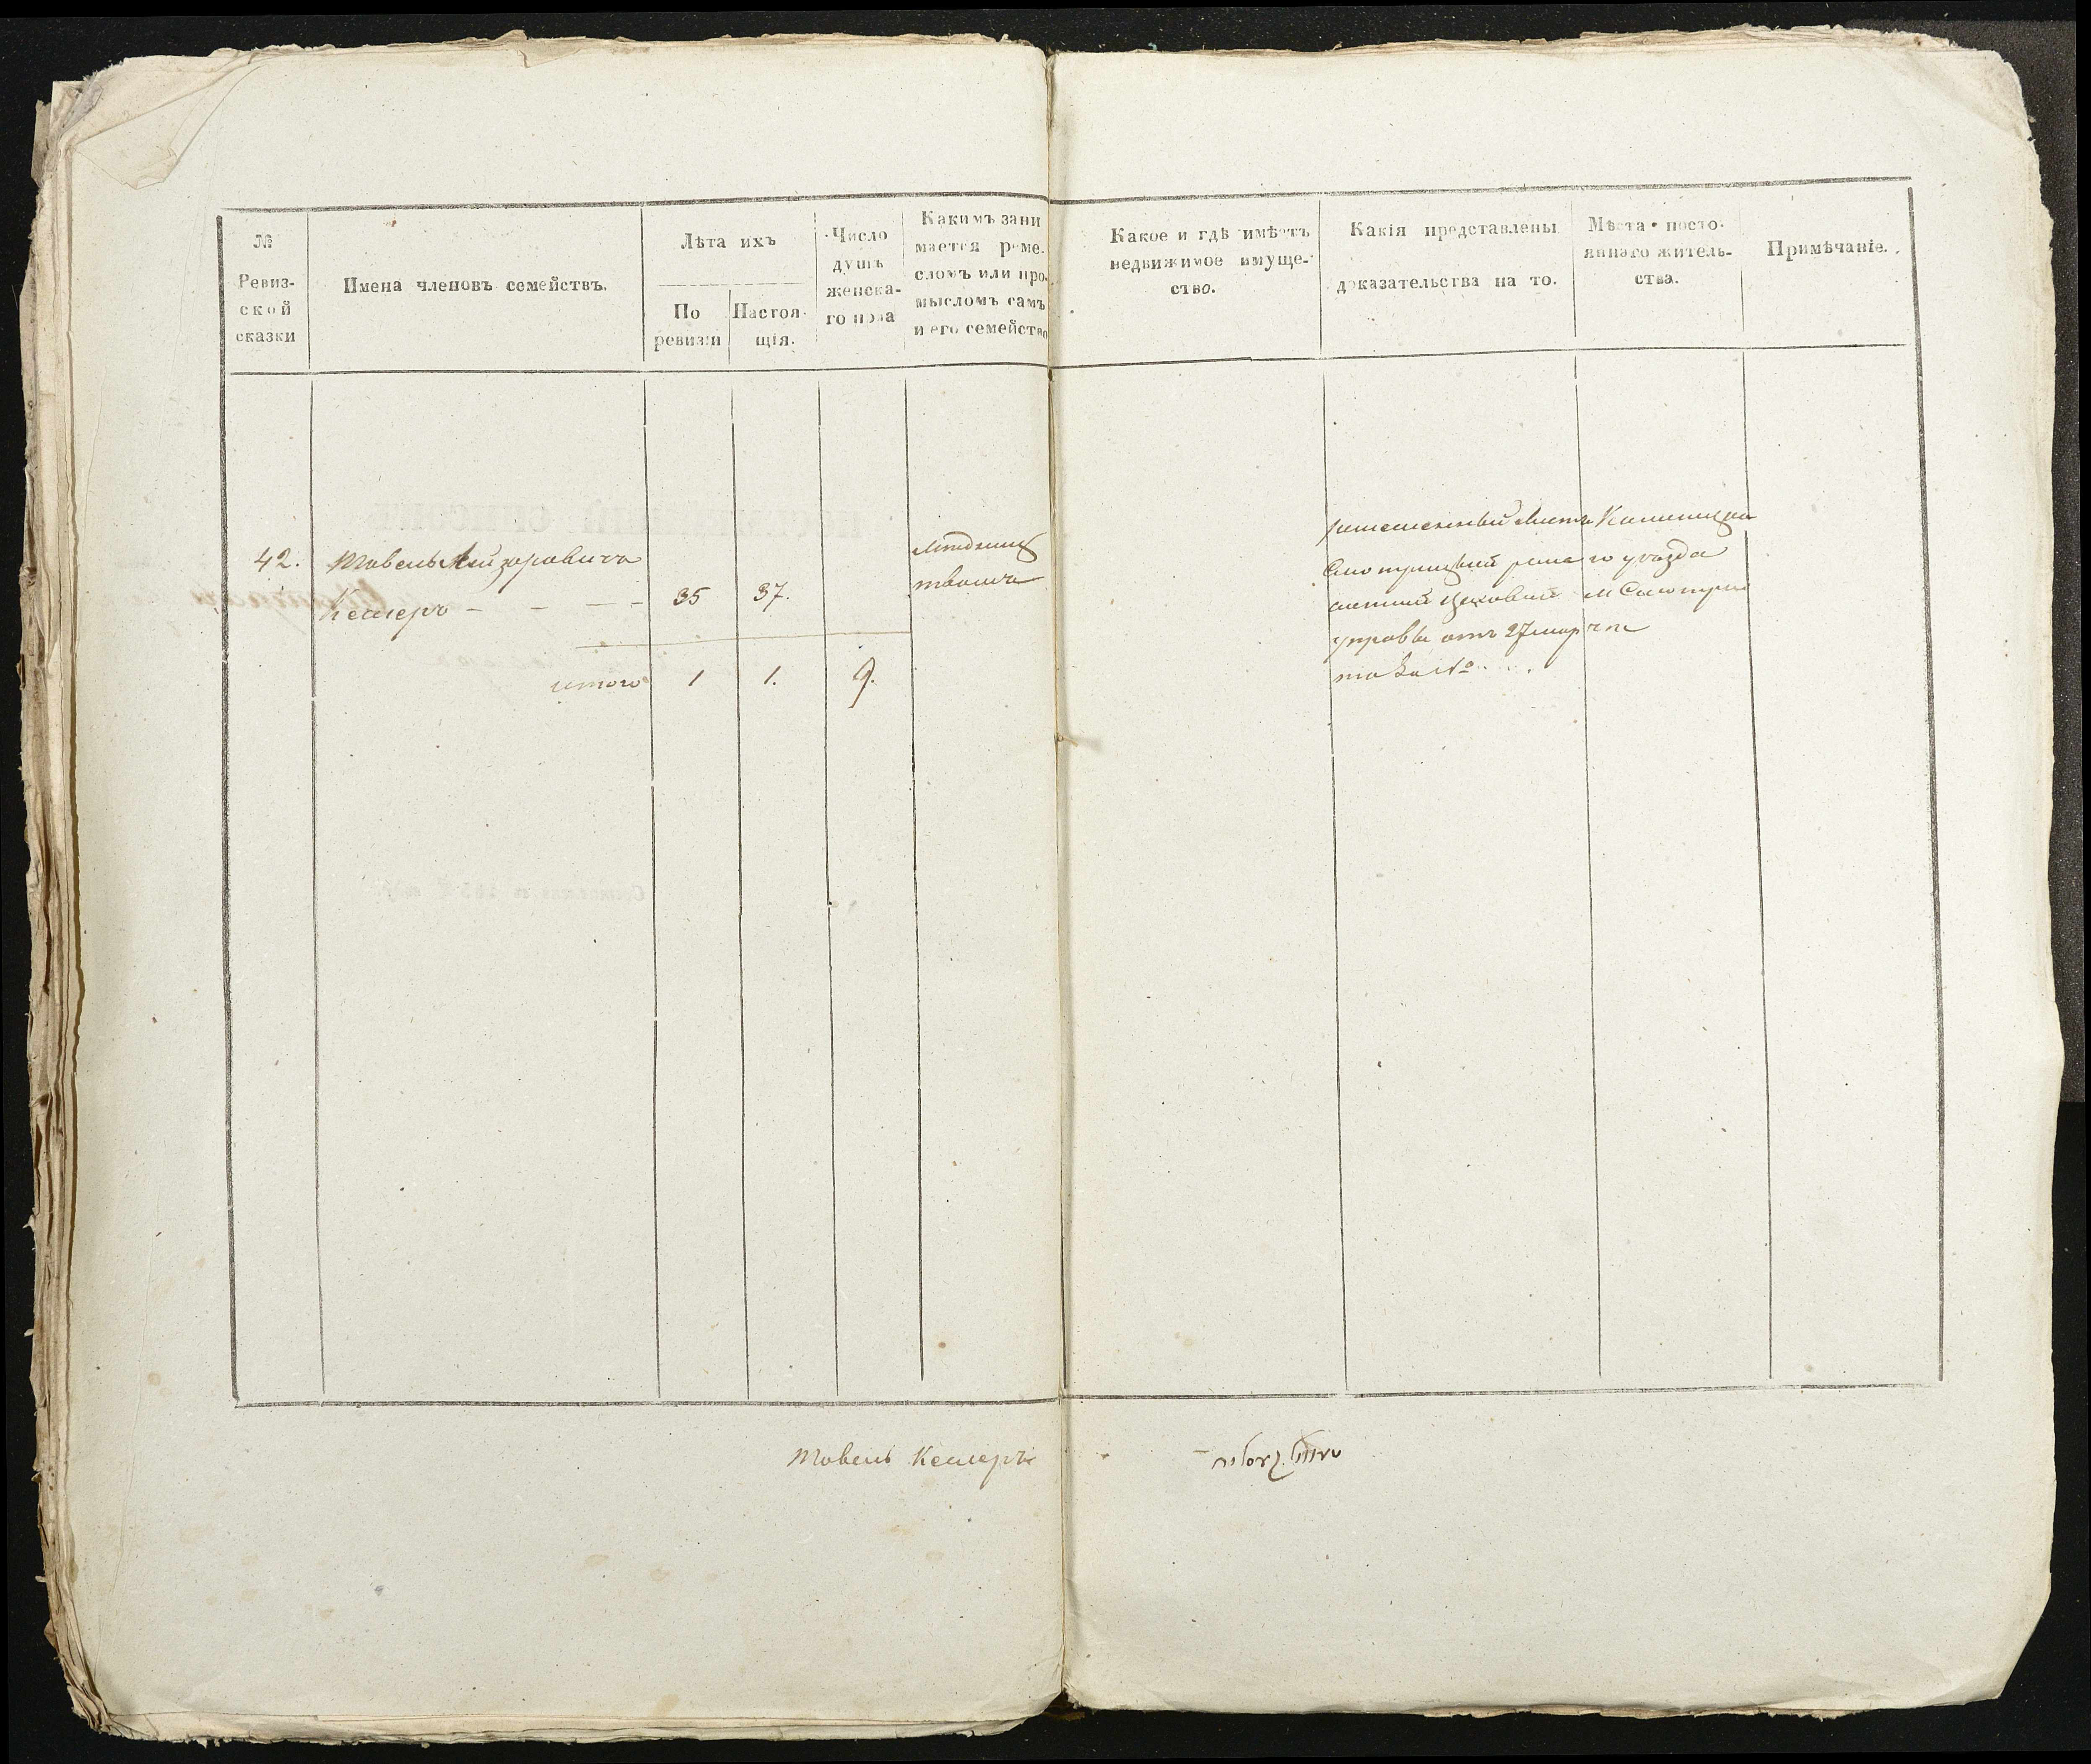 №
Ревиз-
ской
сказки
Имена членовъ семействъ.
Лѣта ихъ
По
ревизіи
Настоя-
щія.
Число
душъ
женска-
го пола
Какимъ зани
мается реме-
сломъ или про-
мысломъ самъ
и его семейство
Какое и гдѣ имѣетъ
недвижимое имуще-
ство.
Какія представлены
доказательства на то.
Мѣста посто-
яннаго житель-
ства.
Примѣчаніе.
42.
Товель Лейзоровичъ
Кеслеръ - - - -
35
37.
итого
1
1.
9.
Мѣдниц
твомъ
ремесленный листъ
Смотрицкой реме
сленной цеховой
управы отъ 27 мар
та за №
Каменецка
го уѣзда
м Смотри
чи
Товель Кеслеръ